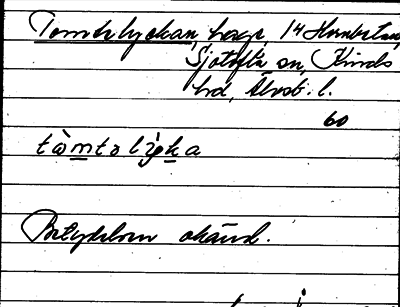 Tomtelyckan, hage, 14 Humbetan,
Sjötofta sn, Kinds
hd, Älvsb. l.
60
tòmtəlỳka
Betydelsen okänd.